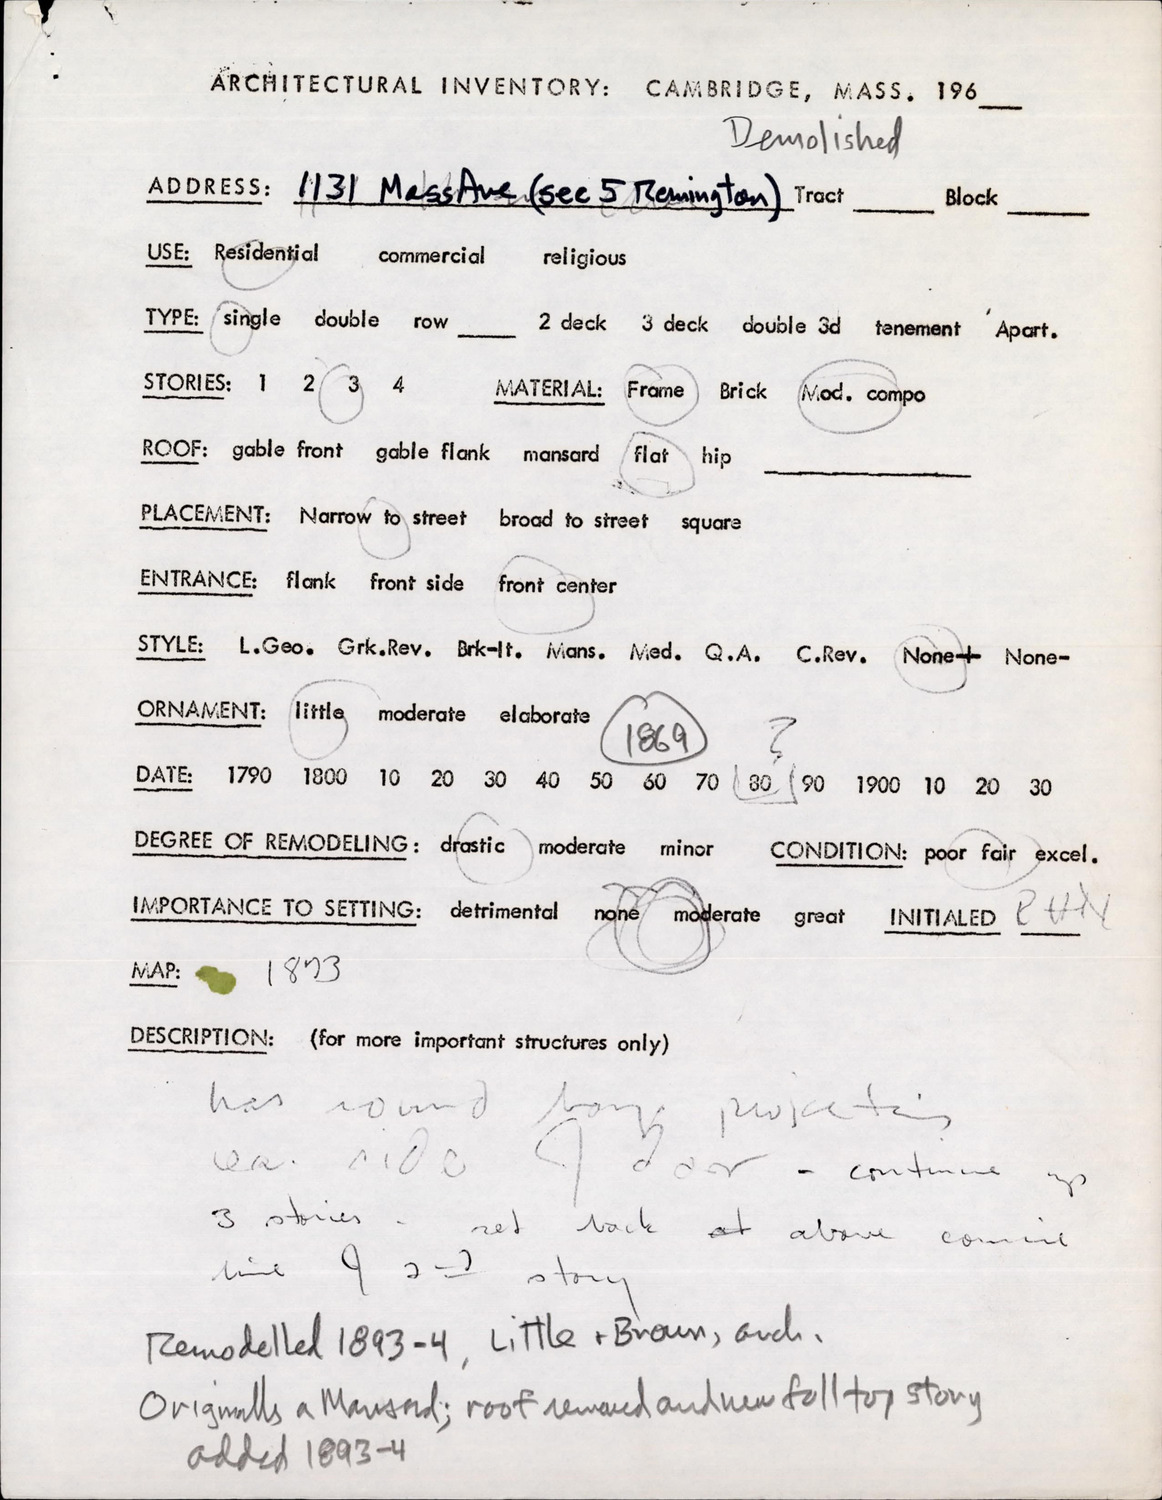 ARCHITECTURAL INVENTORY: CAMBRIDGE, MASS. 196__
Demolished
ADDRESS: 1131 Mass Ave (see 5 Remington) Tract ____ Block ____
USE: Residential commercial religious
TYPE: single double row ___ 2 deck 3 deck double 3d tenement Apart.
STORIES: 1 2 3 4 MATERIAL: Frame Brick Mod. compo
ROOF: gable front gable flank mansard flat hip ____
PLACEMENT: Narrow to street broad to street square
ENTRANCE: flank front side front center
STYLE: L.Geo. Grk.Rev. Brk-It. Mans. Med. Q.A. C.Rev. None+ None-
ORNAMENT: little moderate elaborate 1869 ?
DATE: 1790 1800 10 20 30 40 50 60 70 80 90 1900 10 20 30
DEGREE OF REMODELING: drastic moderate minor CONDITION: poor fair excel.
IMPORTANCE TO SETTING: detrimental none moderate great INITIALED
MAP: 1873
DESCRIPTION: (for more important structures only)
has round bays projecting
ea. side of door - continue up
3 stories - set back at above cornice
line of 2nd story
Remodelled 1893-4, Little + Brown, arch.
Originally a Mansard; roof removed and new full top story
added 1893-4